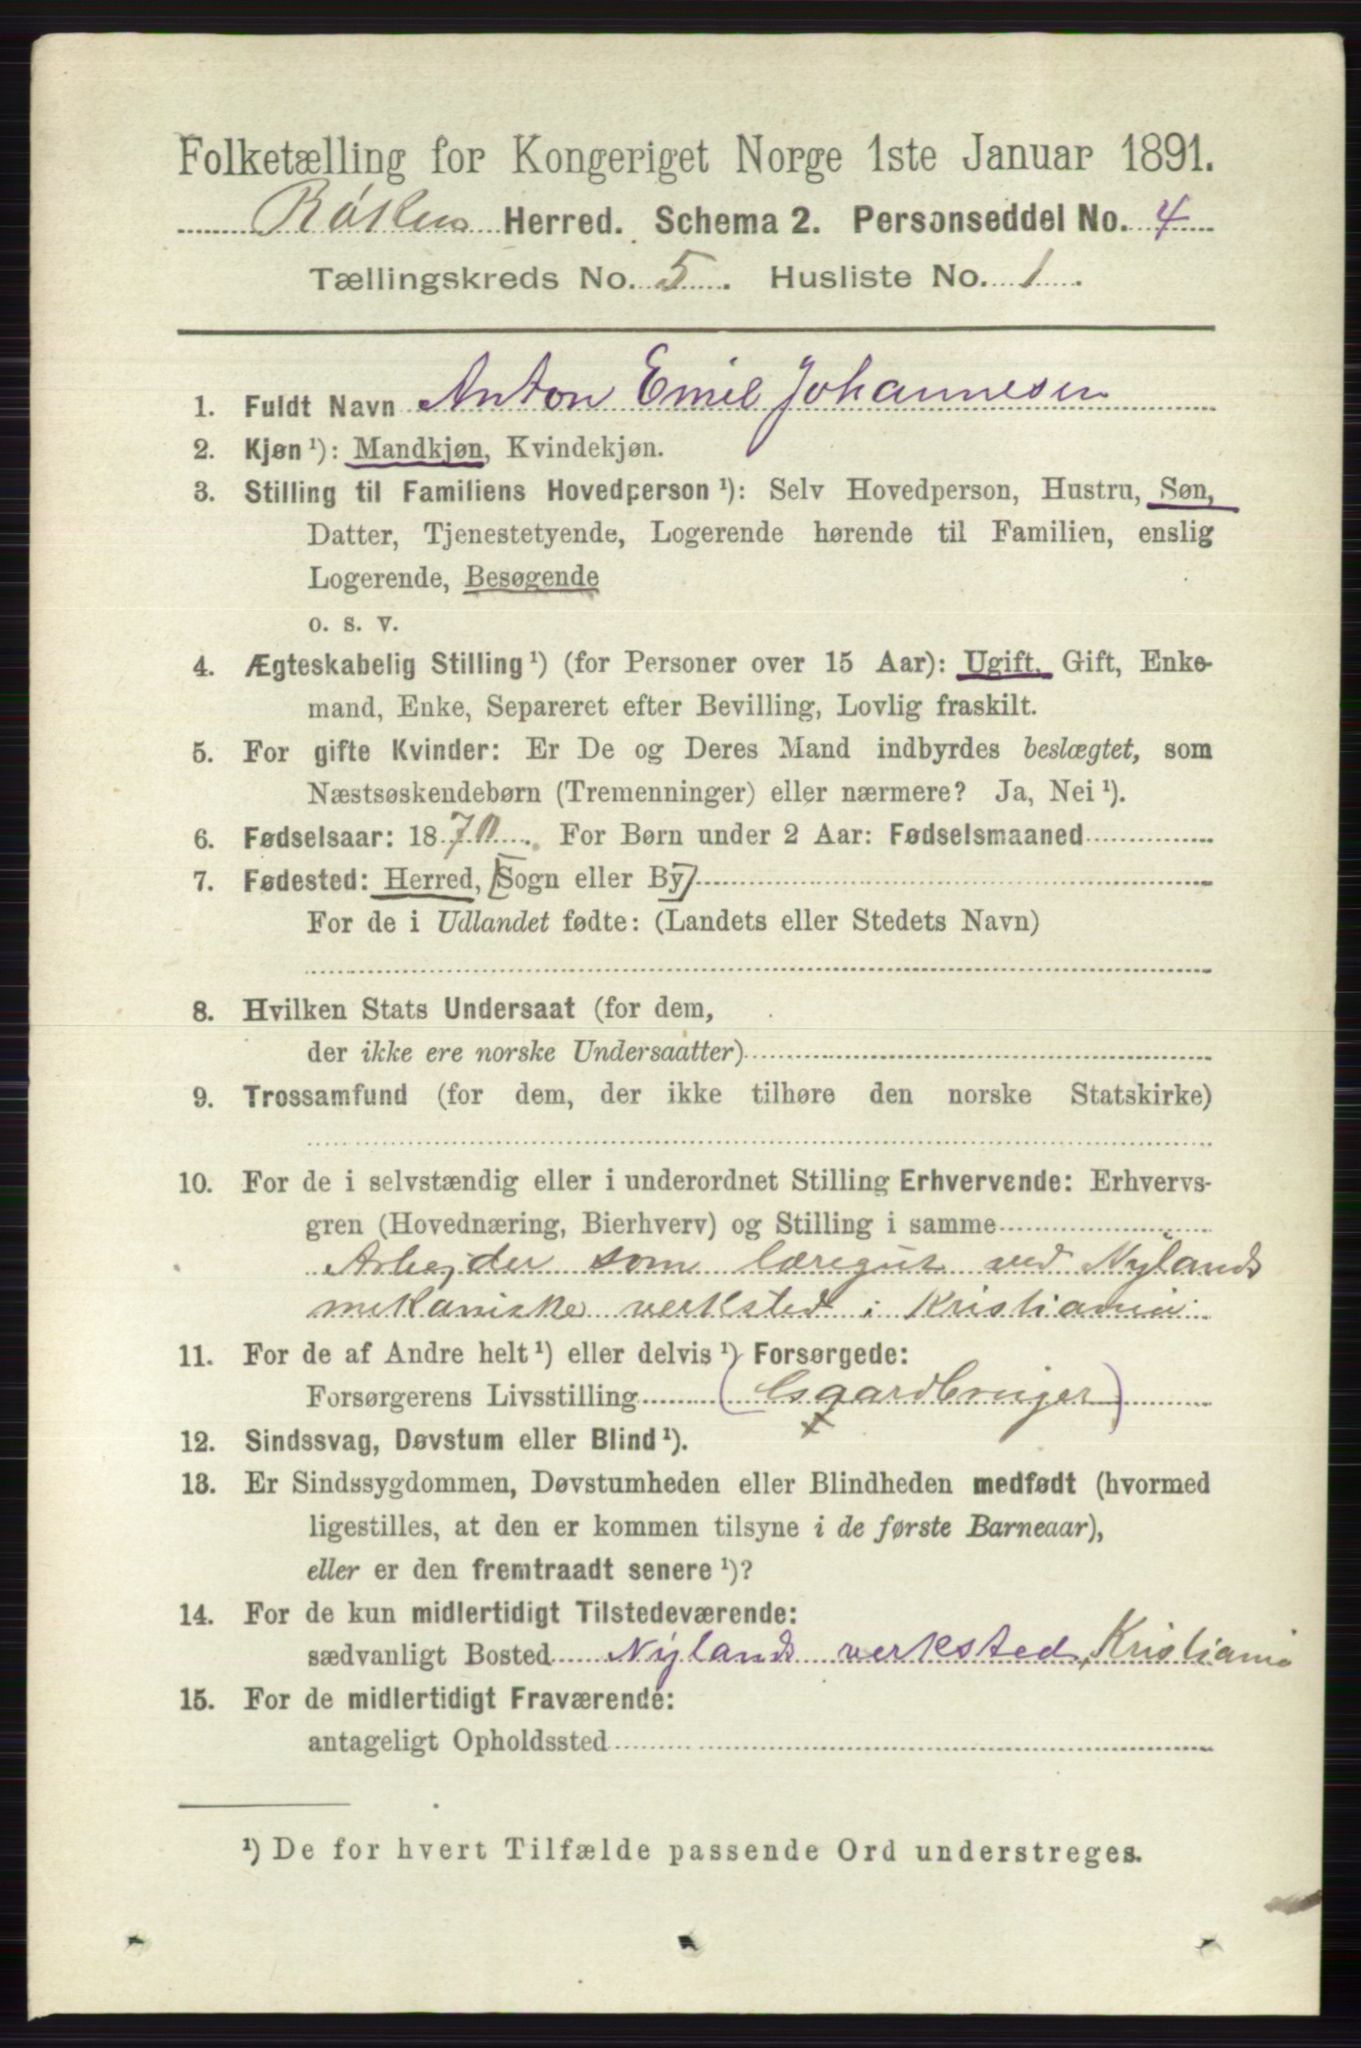 Folketælling for Kongeriget Norge 1ste Januar 1891.
Røken Herred. Schema 2. Personseddel No. 4
Tællingskreds No. 5. Husliste No. 1.
1. Fuldt Navn Anton Emil Johannesen
2. Kjøn¹): Mandkjøn, Kvindekjøn.
3. Stilling til Familiens Hovedperson¹): Selv Hovedperson, Hustru, Søn,
Datter, Tjenestetyende, Logerende hørende til Familien, enslig
Logerende, Besøgende
o. s. v.
4. Ægteskabelig Stilling¹) (for Personer over 15 Aar): Ugift, Gift, Enke-
mand, Enke, Separeret efter Bevilling, Lovlig fraskilt.
5. For gifte Kvinder: Er De og Deres Mand indbyrdes beslægtet, som
Næstsøskendebørn (Tremenninger) eller nærmere? Ja, Nei¹).
6. Fødselsaar: 1870. For Børn under 2 Aar: Fødselsmaaned
7. Fødested: Herred, [Sogn eller By]
For de i Udlandet fødte: (Landets eller Stedets Navn)
8. Hvilken Stats Undersaat (for dem,
der ikke ere norske Undersaatter)
9. Trossamfund (for dem, der ikke tilhøre den norske Statskirke)
10. For de i selvstændig eller i underordnet Stilling Erhvervende: Erhvervs-
gren (Hovednæring, Bierhverv) og Stilling i samme
Arbejder som læregut ved Nylands
mekaniske verksted i Kristiania.
11. For de af Andre helt¹) eller delvis¹) Forsørgede:
Forsørgerens Livsstilling (Gaardbruger)
12. Sindssvag, Døvstum eller Blind¹).
13. Er Sindssygdommen, Døvstumheden eller Blindheden medfødt (hvormed
ligestilles, at den er kommen tilsyne i de første Barneaar),
eller er den fremtraadt senere¹)?
14. For de kun midlertidigt Tilstedeværende:
sædvanligt Bosted Nylands verksted, Kristiania
15. For de midlertidigt Fraværende:
antageligt Opholdssted
¹) De for hvert Tilfælde passende Ord understreges.